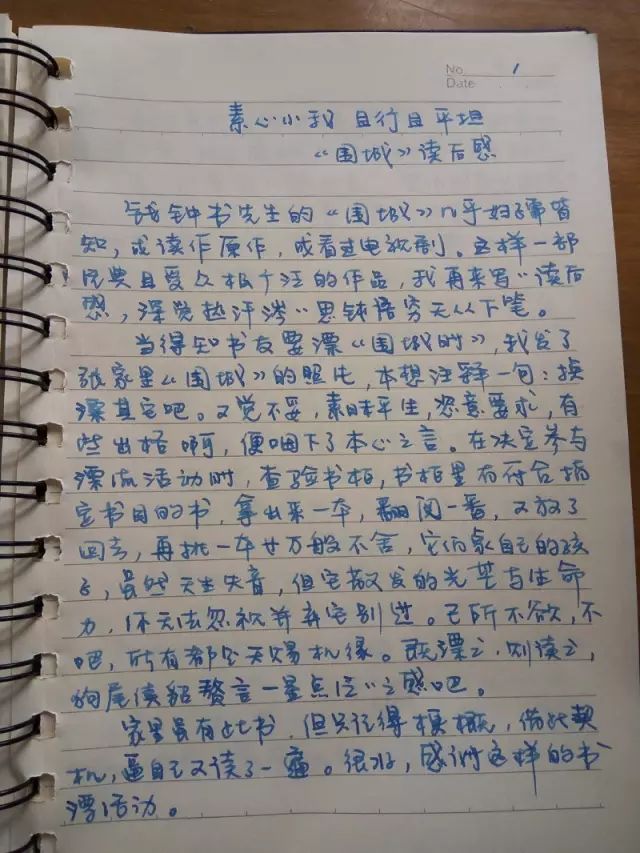 No 1
Date
素心小我 且行且平坦
《围城》读后感
钱钟书先生的《围城》几乎妇孺皆
知，或读作原作，或看过电视剧。这样一部
民典且受众极广泛的作品，我再来写“读后
感，深觉热汗涔〃思钝语穷无从下笔。
当得知书友要漂《围城时》，我发了
张家里《围城》的照片，本想注释一句：换
漂其它吧。又觉不妥，素昧平生，恣意要求，有
些出格啊，便咽下了本心之言。在决定参与
漂流活动时，查验书柜，书柜里有符合指
定书目的书，拿出来一本，翻阅一番，又放了
回去，再挑一本也万般不舍，它们象自己的孩
子，虽然天生失音，但它散发的光芒与生命
力，你无法忽视并弃它别过。己所不欲，不
吧，所有都是天赐机缘。既漂之，则读之，
狗尾续貂赘言一星点泛〃之感吧。
家里虽有此书，但只记得梗概，借此契
机，逼自己又读了一遍。很好，感谢这样的书
漂活动。